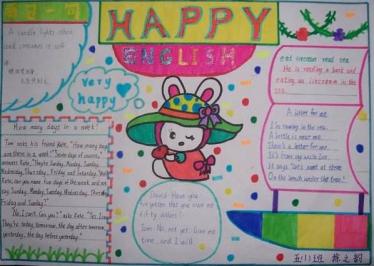 HAPPY
ENGLISH
A candle lights others
and consumes it self
very
happy
How many days in a week?
Tom asks his friend Kate, "How many days
are there in a week?" "Seven days of course,"
answers Kate, "They're Sunday, Monday, Tuesday,
Wednesday, Thursday, Friday and Saturday." "Well,
Kate, can you name five days of the week and not
say Sunday, Monday, Tuesday, Wednesday, Thursday,
Friday and Sunday?"
"No, I can't. Can you?" asks Kate. "Yes, I can.
They're today, tomorrow, the day after tomorrow,
yesterday, the day before yesterday."
eat icecream read sea
He is reading a book and
eating an icecream in the
sea.
A letter for me
I'm rowing in the sea.
A bottle is near me.
There's a letter for me.
It's from my uncle Lee.
It says "Let's meet at three
On the beach under the tree."
David: Have you
forgotten that you owe me
Tom: No, not yet. Give me
time, and I will.